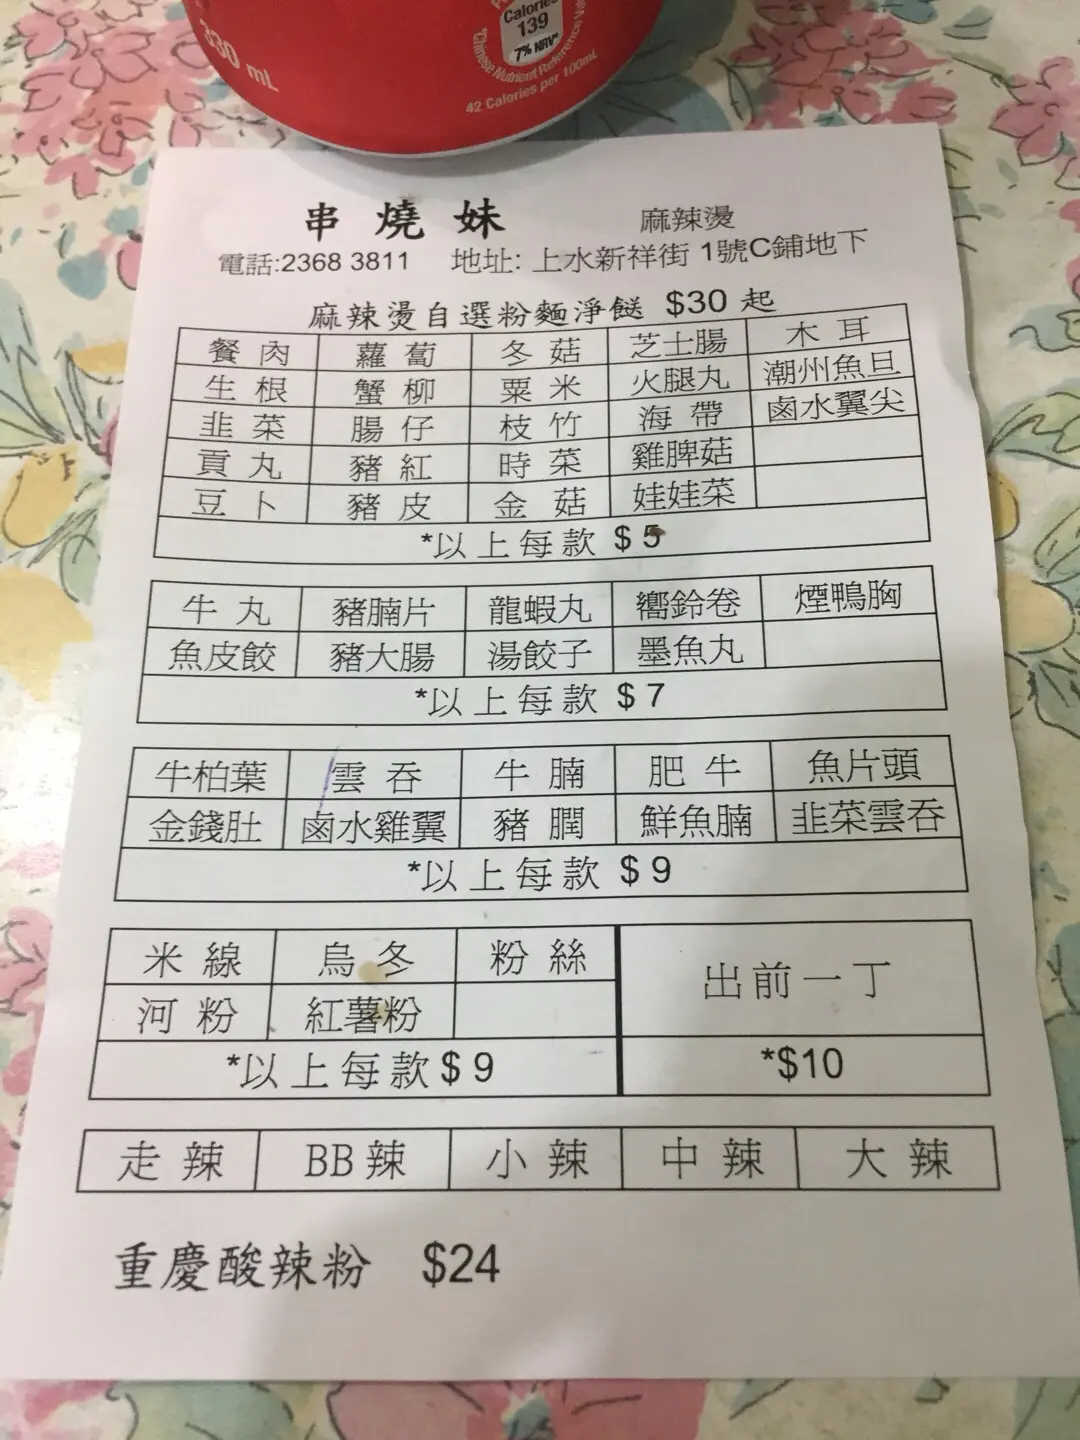 330 mL
Calories
139
7% NRV*
*Chinese Nutrient Reference Val
42 Calories per 100mL
串燒妹 麻辣燙
電話:2368 3811 地址: 上水新祥街 1號C鋪地下
麻辣燙自選粉麵淨餸 $30 起
餐肉 蘿蔔 冬菇 芝士腸 木耳
生根 蟹柳 粟米 火腿丸 潮州魚旦
韭菜 腸仔 枝竹 海帶 鹵水翼尖
貢丸 豬紅 時菜 雞脾菇
豆卜 豬皮 金菇 娃娃菜
*以上每款 $5
牛丸 豬腩片 龍蝦丸 嚮鈴卷 煙鴨胸
魚皮餃 豬大腸 湯餃子 墨魚丸
*以上每款 $7
牛柏葉 雲吞 牛腩 肥牛 魚片頭
金錢肚 鹵水雞翼 豬膶 鮮魚腩 韭菜雲吞
*以上每款 $9
米線 烏冬 粉絲 出前一丁
河粉 紅薯粉
*以上每款$9 *$10
走辣 BB辣 小辣 中辣 大辣
重慶酸辣粉 $24